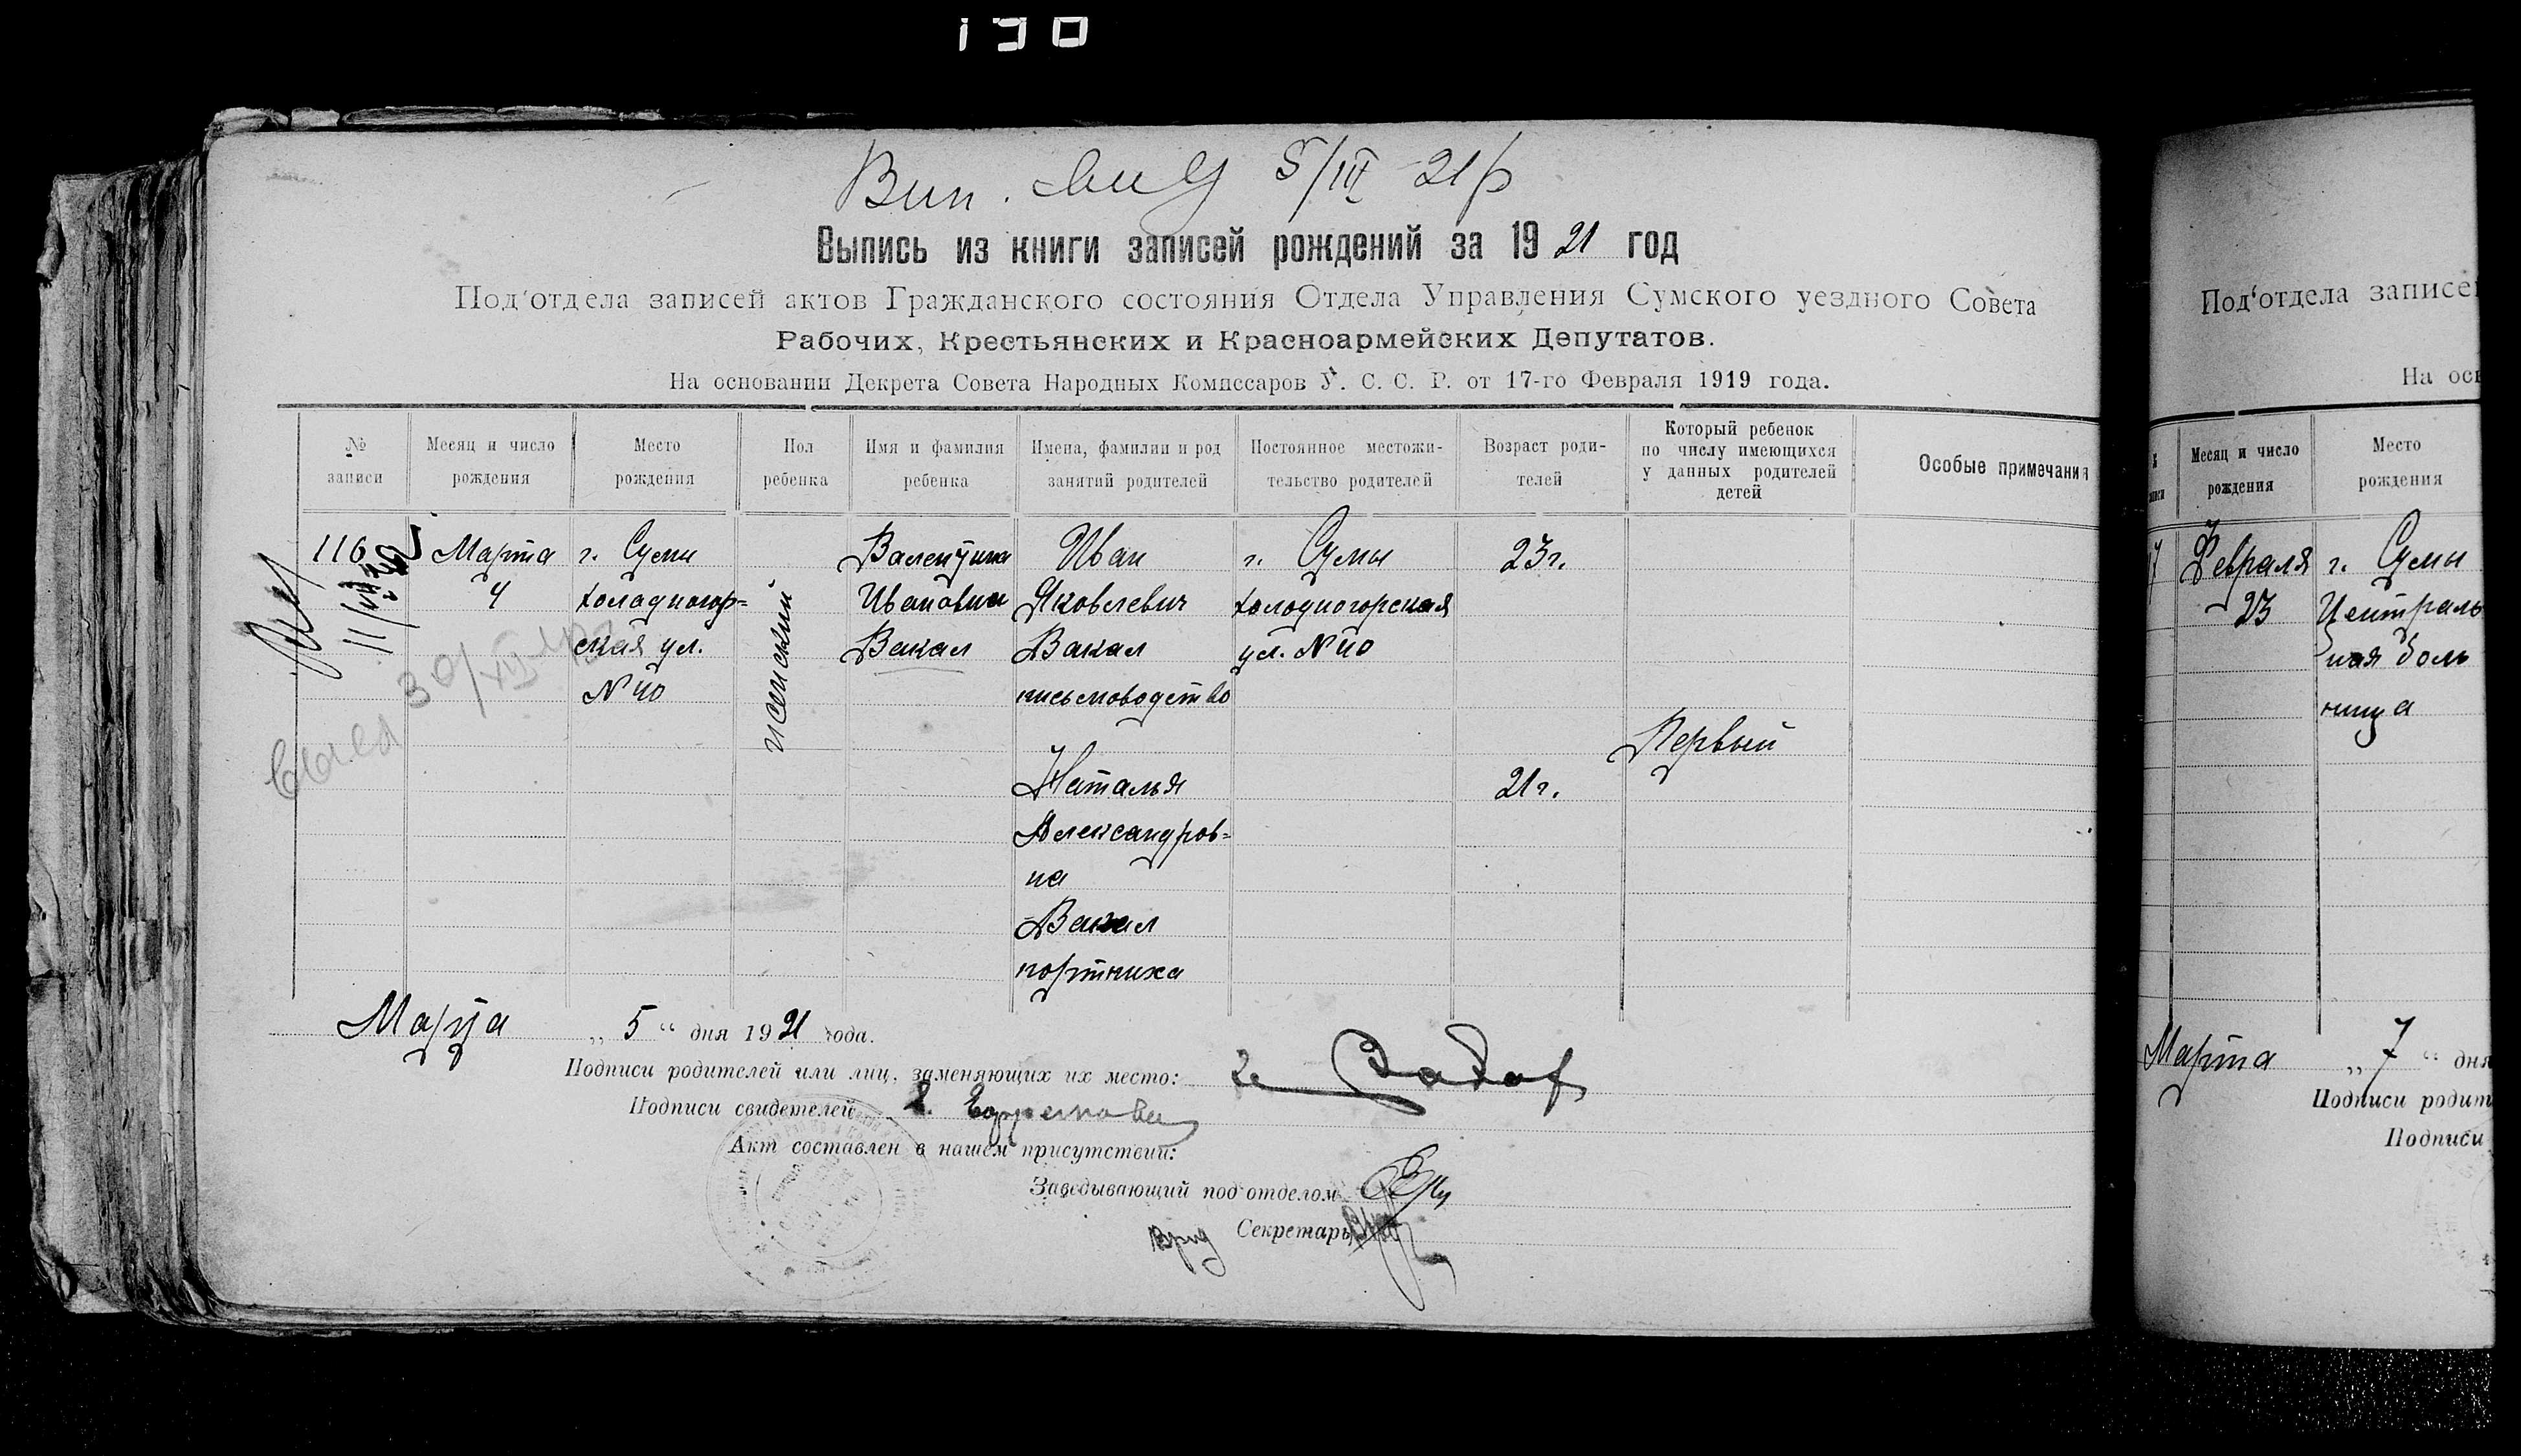 130
Вип. 5/III 21 р
Выпись из книги записей рождений за 1921 год
Под‘отдела записей актов Гражданского состояния Отдела Управления Сумского уездного Совета
Рабочих, Крестьянских и Красноармейских Депутатов.
На основании Декрета Совета Народных Комиссаров У. С. С. Р. от 17-го Февраля 1919 года.
№ записи
Месяц и число рождения
Место рождения
Пол ребенка
Имя и фамилия ребенка
Имена, фамилии и род занятий родителей
Постоянное местожи-тельство родителей
Возраст роди-телей
Который ребенок по числу имеющихся у данных родителей детей
Особые примечания
116
Марта
4
г. Сумы
Холодногор=
ская ул.
N 40
женский
Валентина
Ивановна
Вакал
Иван
Яковлевич
Вакал
письмоводство
Наталья
Александров=
на
Вакал
портниха
г. Сумы
Холодногорская
ул. N 40
23 г.
21 г.
Первый
11/VII
30/XII
Марта „ 5 “ дня 1921 года.
Подписи родителей или лиц, заменяющих их место:
Подписи свидетелей Ефремова
Акт составлен в нашем присутствии:
Заведывающий под‘отделом
Врид Секретарь
Под‘отдела записей
На осн
записи
Месяц и число рождения
Место рождения
7
Февраля
23
г. Сумы
Централь
ная боль
ница
Марта „ 7 “ дня
Подписи родит
Подписи